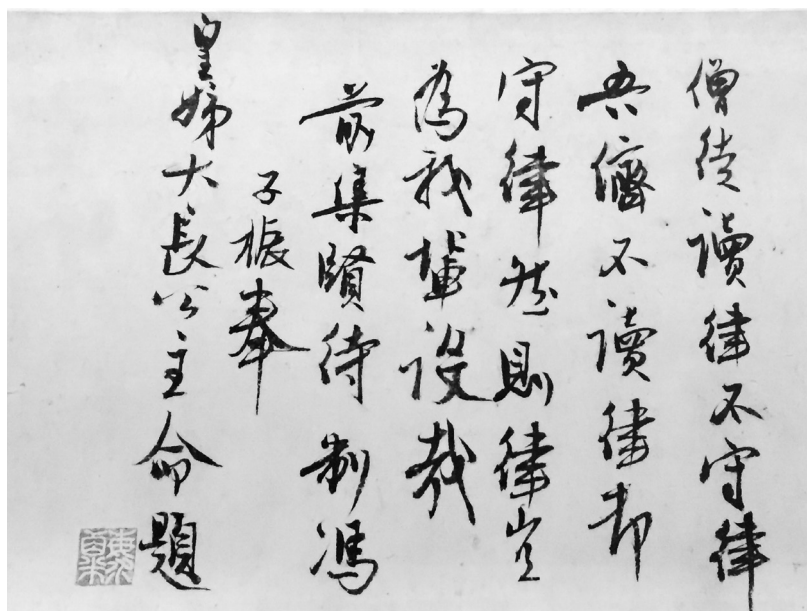 僧徒讀律不守律
吾儕不讀律却
守律然則律豈
為我輩設哉
前集賢待制馮
子振奉
皇姊大長公主命題